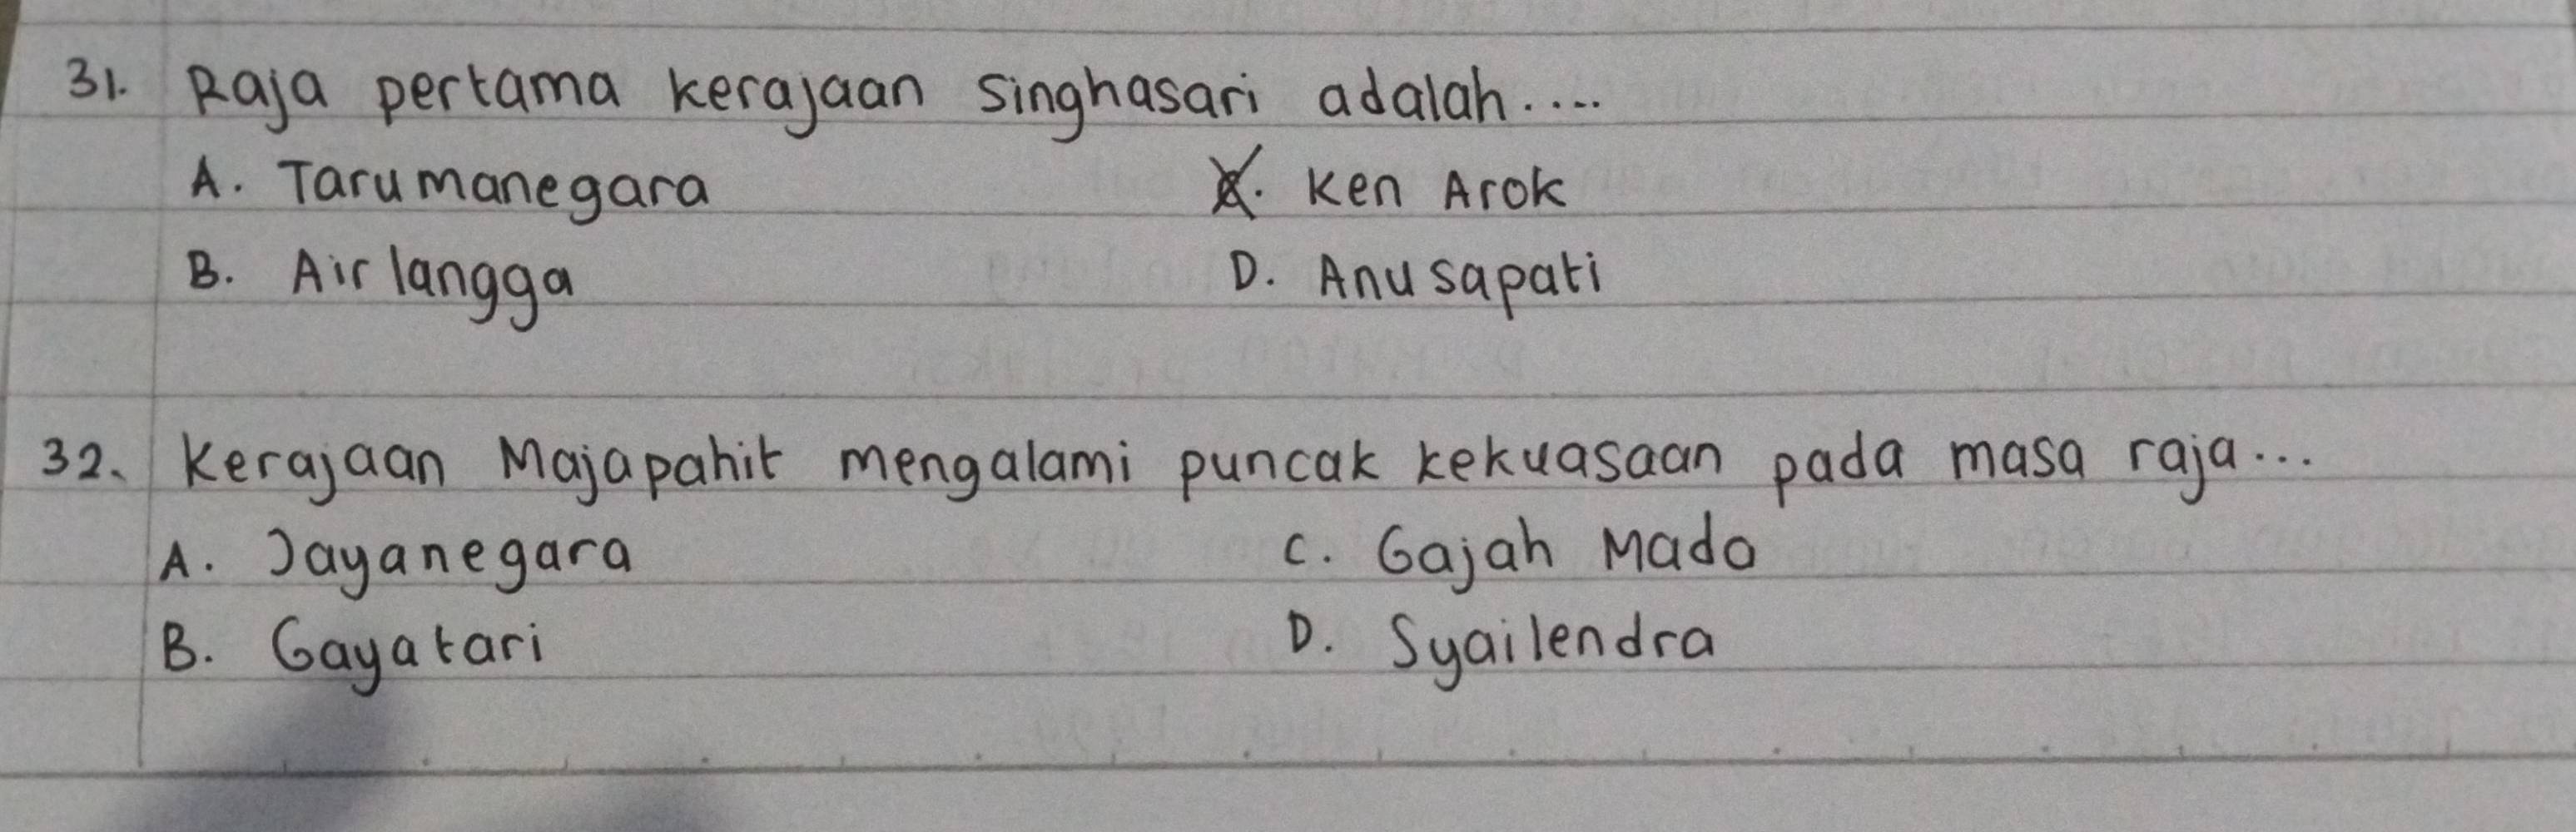 31. Raja pertama kerajaan Singhasari adalah....
A. Tarumanegara C. Ken Arok
B. Airlangga D. Anusapati
32. Kerajaan Majapahit mengalami puncak kekuasaan pada masa raja...
A. Jayanegara C. Gajah Mado
B. Gayatari D. Syailendra